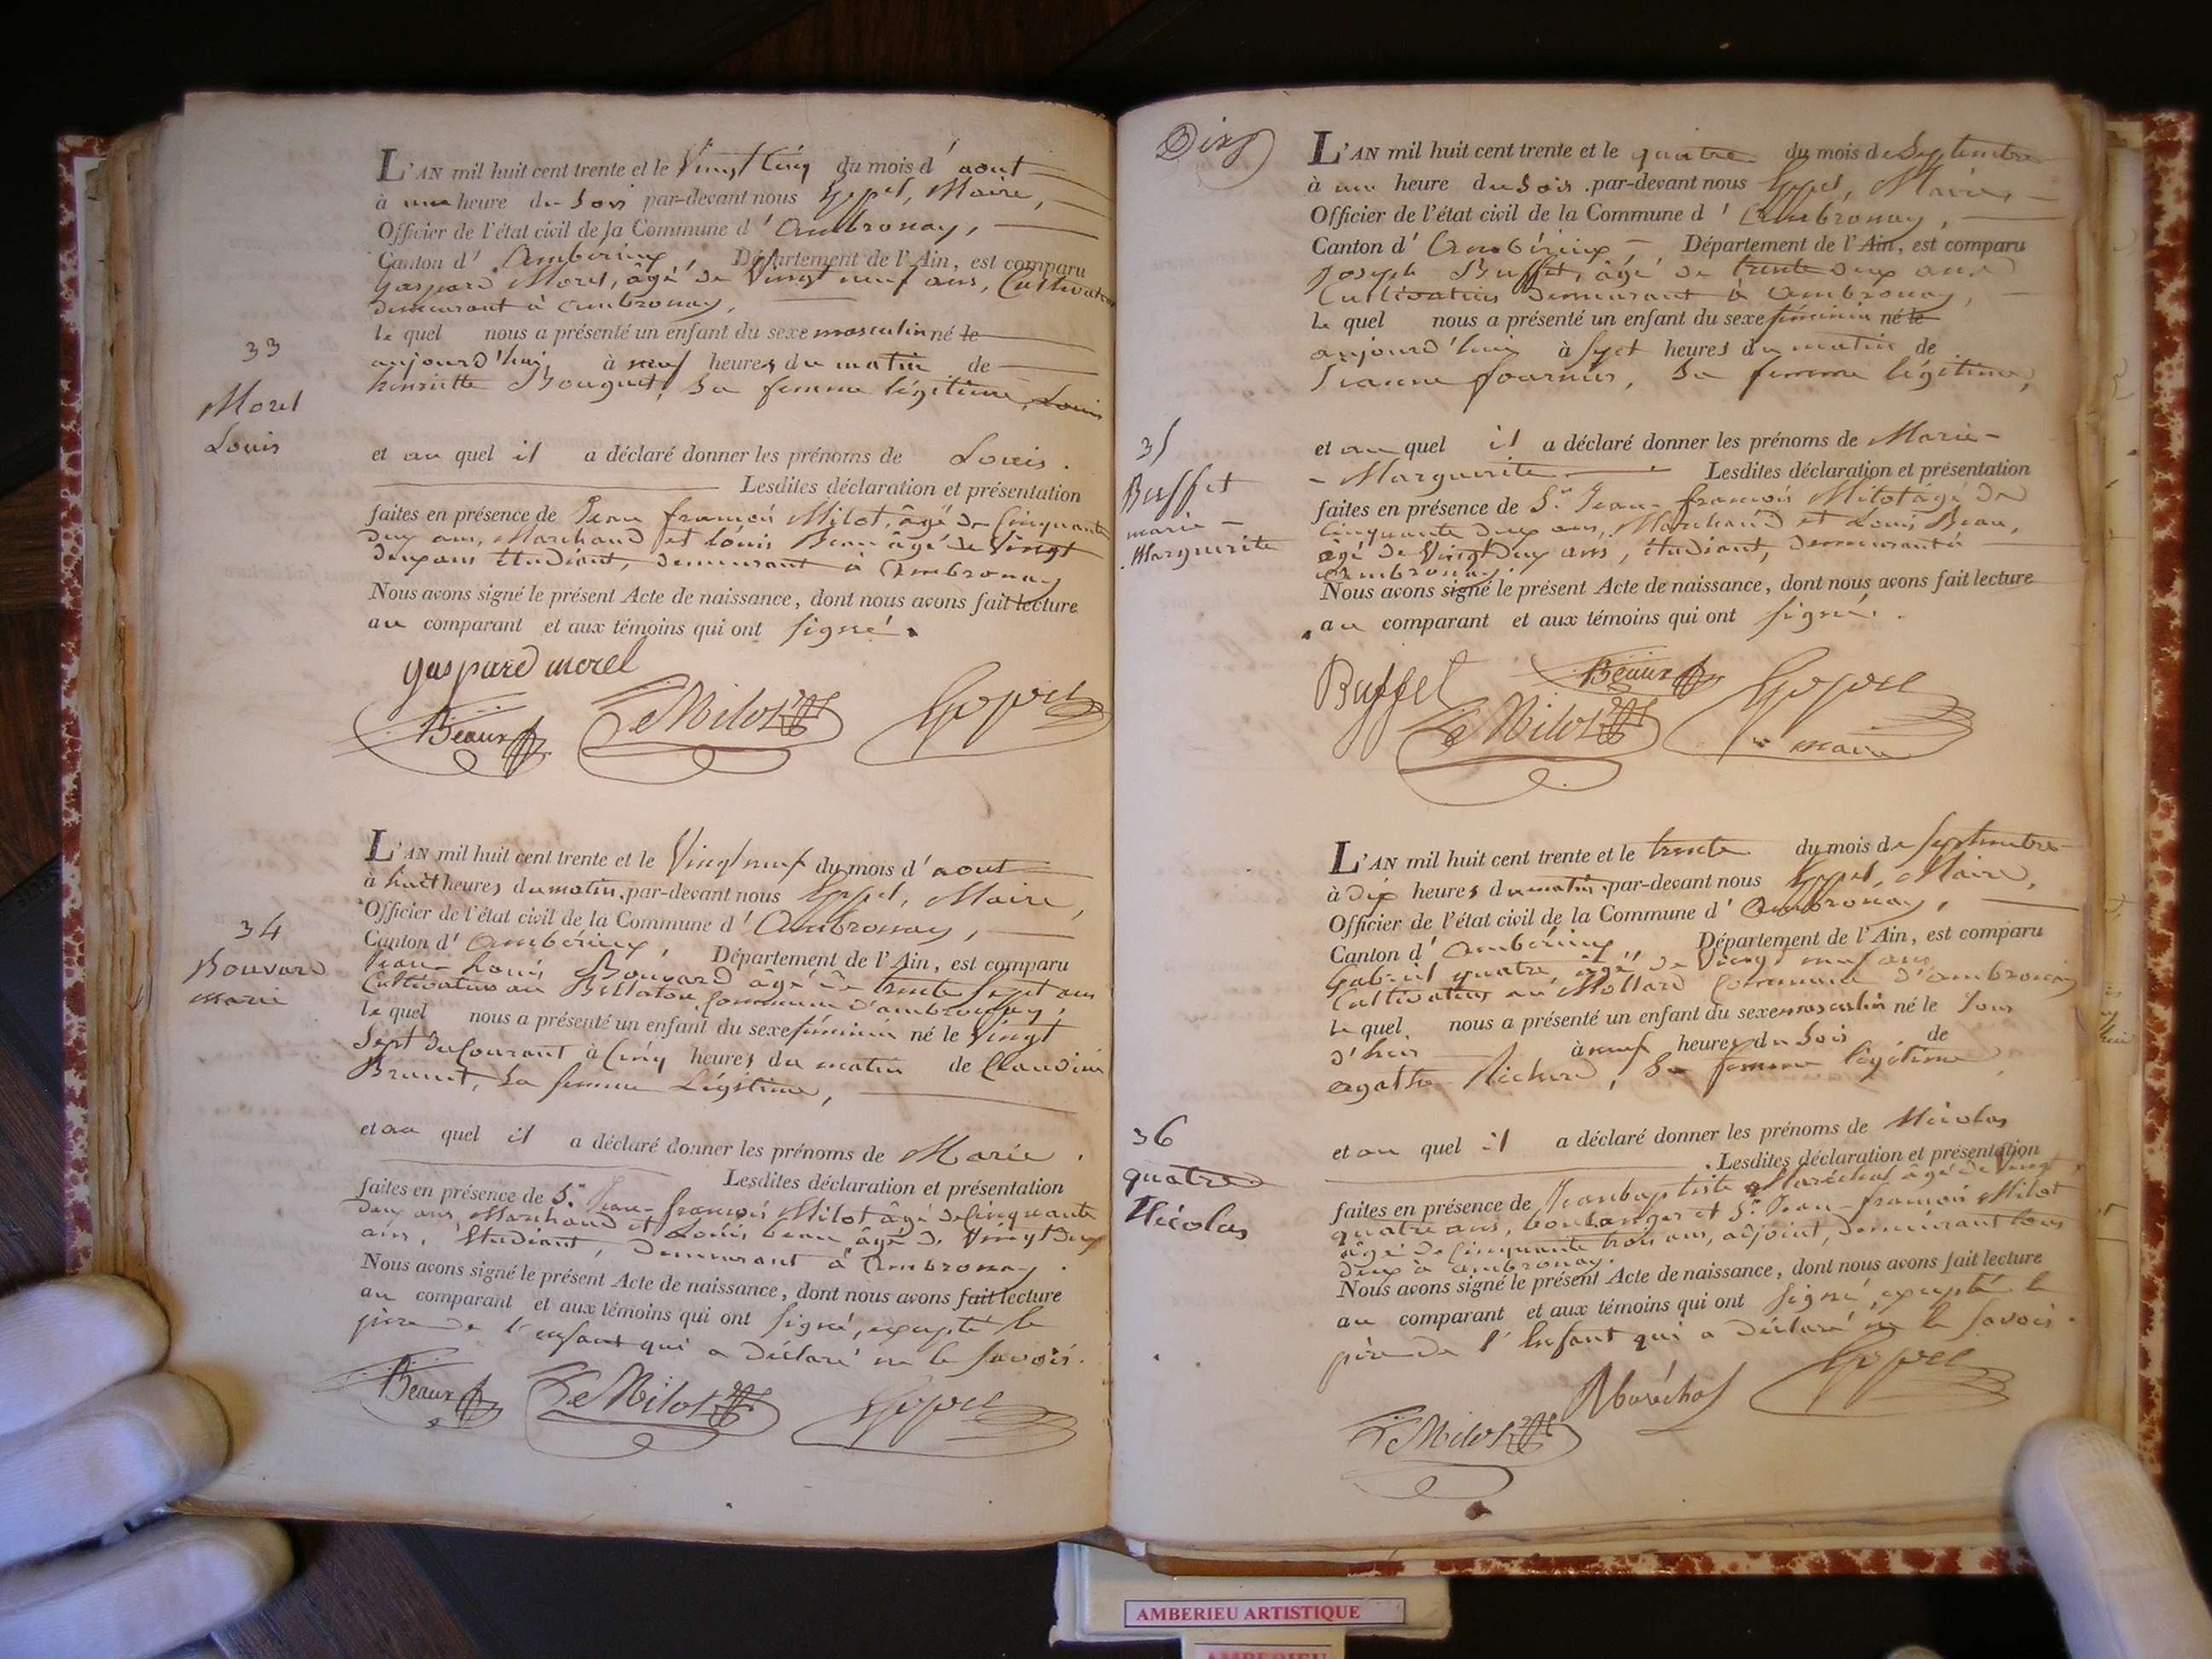 L'AN mil huit cent trente et le Vingt Cinq du mois d' aout
à une heure du Soir par-devant nous Goppet, Maire,
Officier de l'état civil de la Commune d' Ambronay,
Canton d' Ambérieux, Département de l'Ain, est comparu
Gaspard Morel, âgé de Vingt neuf ans, Cultivateur
demeurant à ambronay,
33
le quel nous a présenté un enfant du sexe masculin né le
aujourd'hui à neuf heures du matin de
Morel
henriette Bouguet, Sa femme légitime, Louis
Louis
et au quel il a déclaré donner les prénoms de Louis.
Lesdites déclaration et présentation
faites en présence de Jean françois Milot, âgé de Cinquante
deux ans, Marchand et Louis Beau âgé de Vingt
deux ans Etudiant, demeurant à Ambronay
Nous avons signé le présent Acte de naissance, dont nous avons fait lecture
au comparant et aux témoins qui ont signé.
gaspard morel
Beaux Milot
L'AN mil huit cent trente et le Vingt neuf du mois d' aout
à huit heures du matin, par-devant nous Goppet, Maire,
Officier de l'état civil de la Commune d' Ambronay,
34
Canton d' Ambérieux, Département de l'Ain, est comparu
Bouvard
Jean-Louis Bouvard âgé de trente Sept ans
marie
Cultivateur au Bellaton Commune d'ambronay,
le quel nous a présenté un enfant du sexe féminin né le Vingt
Sept du Courant à Cinq heures du matin de Claudine
Brunet, Sa femme Légitime,
et au quel il a déclaré donner les prénoms de Marie.
Lesdites déclaration et présentation
faites en présence de Sr. Jean-françois Milot âgé de Cinquante
deux ans, Marchand et Louis beau âgé de Vingt deux
ans, Etudiant, demeurant à Ambronay.
Nous avons signé le présent Acte de naissance, dont nous avons fait lecture
au comparant et aux témoins qui ont signé, excepté le
père de l'enfant qui a Déclaré ne le Savoir.
Beaux Milot
L'AN mil huit cent trente et le quatre du mois de Septembre
à une heure du Soir par-devant nous Goppet, Maire,
Officier de l'état civil de la Commune d' Ambronay,
Canton d' Ambérieux Département de l'Ain, est comparu
Joseph Buffet, âgé de trente deux ans
Cultivateur demeurant à Ambronay,
le quel nous a présenté un enfant du sexe féminin né le
aujourd'hui à Sept heures du matin de
Jeanne fournier, Sa femme légitime,
35
et au quel il a déclaré donner les prénoms de Marie-
Buffet
- Marguerite Lesdites déclaration et présentation
marie-
faites en présence de Sr. Jean-françois Milot agé de
Marguerite
Cinquante deux ans, Marchand et Louis Beau,
âgé de Vingt deux ans, étudiant, demeurant à
Ambronay.
Nous avons signé le présent Acte de naissance, dont nous avons fait lecture
au comparant et aux témoins qui ont signé.
Buffet Beaux
Milot maire
L'AN mil huit cent trente et le trente du mois de Septembre
à Dix heures du matin par-devant nous Goppet, Maire,
Officier de l'état civil de la Commune d' Ambronay,
Canton d' Ambérieux, Département de l'Ain, est comparu
Gabriel quatre, âgé de Vingt neuf ans,
Cultivateur au Mollard Commune d'ambronay
le quel nous a présenté un enfant du sexe masculin né le Jour
d'hier à neuf heures du Soir de
agathe Richerd, Sa femme légitime
36
et au quel il a déclaré donner les prénoms de Nicolas
quatre
Lesdites déclaration et présentation
Nicolas
faites en présence de Jean baptiste Maréchal âgé de Vingt
quatre ans, boulanger et Sr. Jean-françois Milot
âgé de Cinquante trois ans, adjoint, demeurant tous
deux à ambronay.
Nous avons signé le présent Acte de naissance, dont nous avons fait lecture
au comparant et aux témoins qui ont signé, excepté le
père de l'Enfant qui a Déclaré ne le Savoir.
Maréchal
Milot
AMBERIEU ARTISTIQUE
AMBERIEU